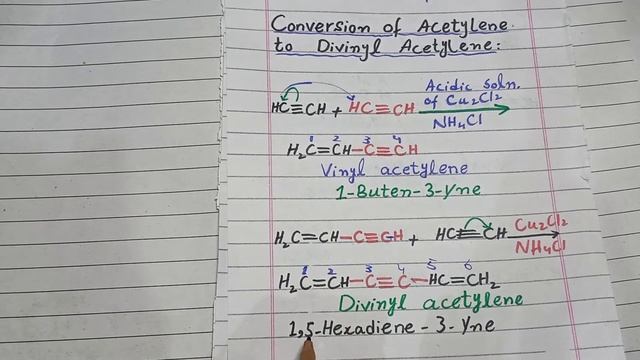 Conversion of Acetylene
to Divinyl Acetylene:
HC≡CH + HC≡CH
Acidic Soln.
of Cu2Cl2
NH4Cl
1 2 3 4
H2C=CH-C≡CH
Vinyl acetylene
1-Buten-3-Yne
H2C=CH-C≡CH + HC≡CH
Cu2Cl2
NH4Cl
1 2 3 4 5 6
H2C=CH-C≡C-HC=CH2
Divinyl acetylene
1,5-Hexadiene-3-Yne